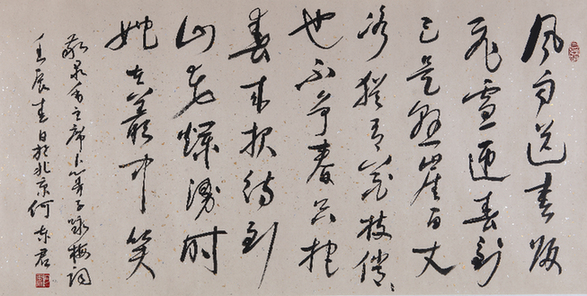 风雨送春归
飛雪迎春到
已是悬崖百丈
冰犹有花枝俏〻
也不争春只把
春来报待到
山花爛漫时
她在叢中笑
敬录毛主席卜算子咏梅词
壬辰春日於北京何东君